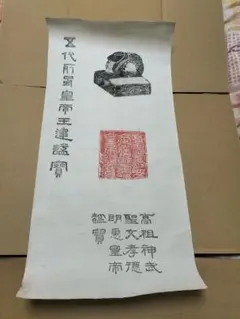 五代前蜀皇帝王建謚寶
高祖神武
聖文孝德
明惠皇帝
謚寶